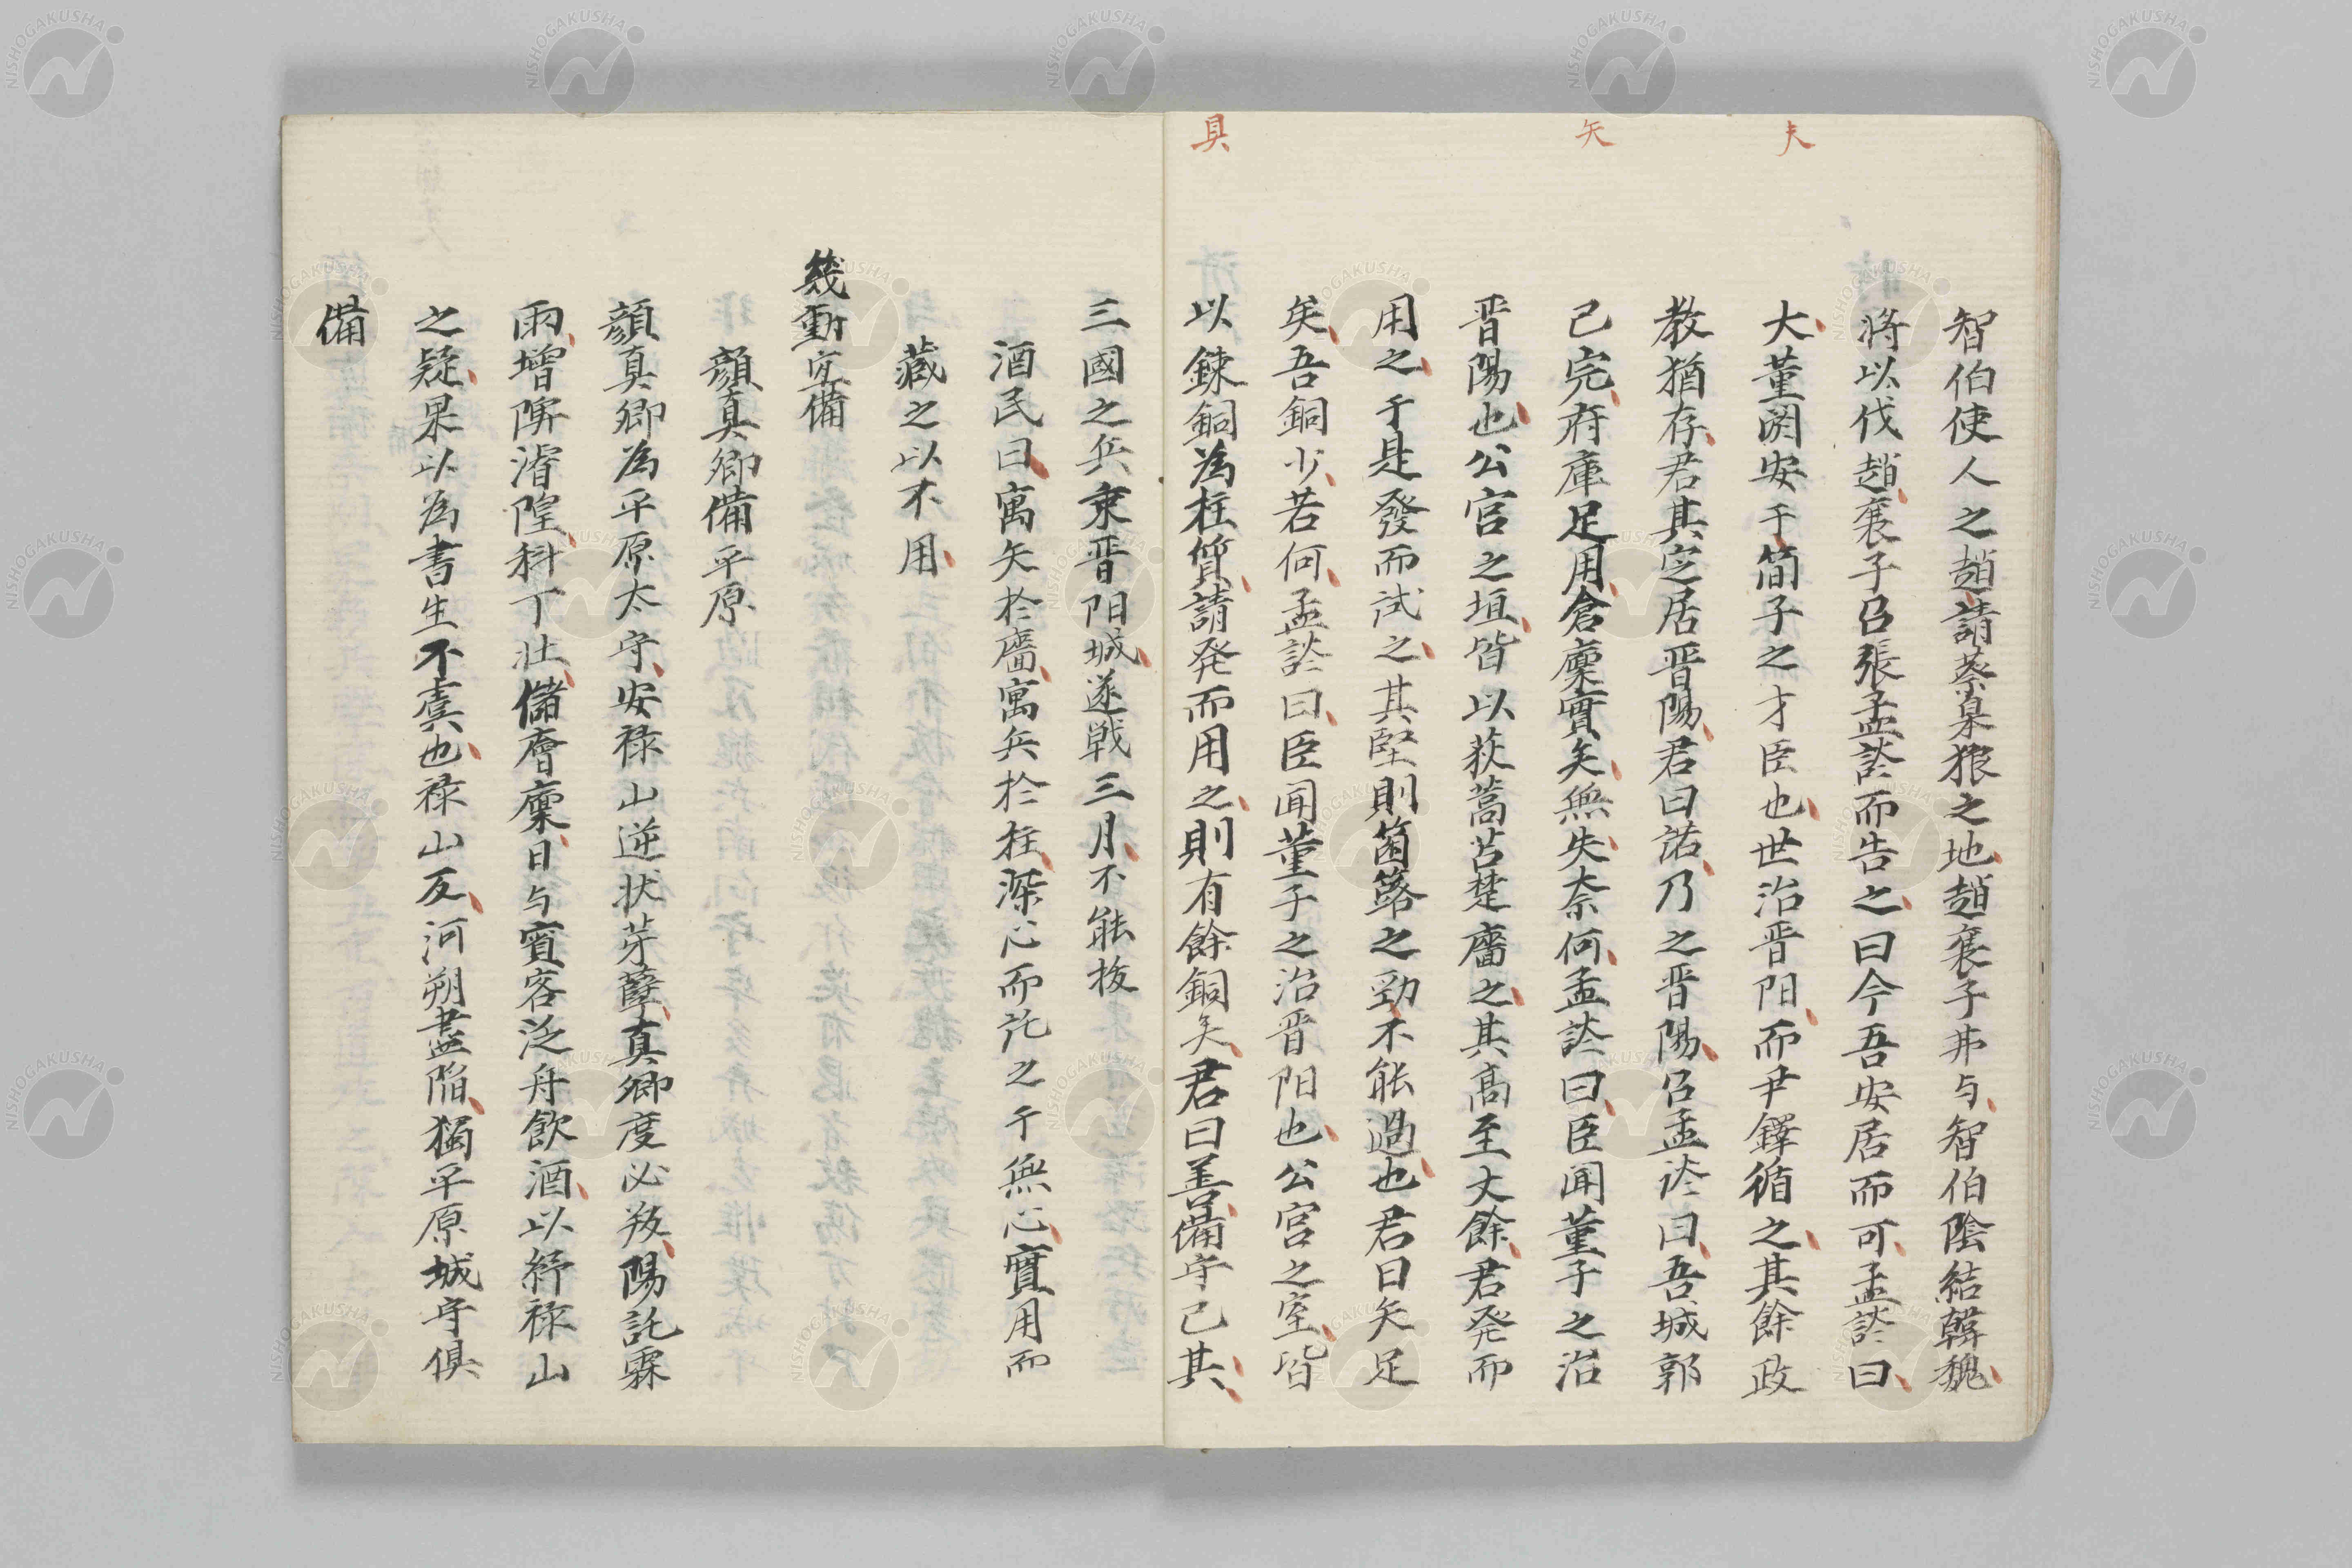 夫
矢
具
智伯使人之趙請蔡皐狼之地趙襄子弗与智伯陰結韓魏
将以伐趙襄子召張孟談而告之曰今吾安居而可孟談曰
大董閼安于簡子之才臣也世治晋阳而尹鐸循之其餘政
教猶存君其定居晋陽君曰諾乃之晋陽召孟談曰吾城郭
已完府庫足用倉廩實矣無失奈何孟談曰臣闻董子之治
晋陽也公宮之垣皆以荻蒿苫楚廧之其高至丈餘君発而
用之于是發而试之其堅則箘簬之勁不能過也君曰矢足
矣吾銅少若何孟談曰臣闻董子之治晋阳也公宮之室皆
以錬銅為柱質請発而用之則有餘銅矣君曰善備守已其
三國之兵乗晋阳城遂戦三月不能抜
酒民曰寓矢於廧寓兵於柱深心而託之于無心實用而
藏之以不用
幾動宜備
顔真卿備平原
顔真卿為平原太守安禄山逆状芽孽真卿度必叛陽託霖
雨増陴濬隍料丁壮儲廥廩日与賓客泛舟飲酒以紓禄山
之疑果以為書生不虞也禄山反河朔盡陷獨平原城守倶
備
NISHOGAKUSHA